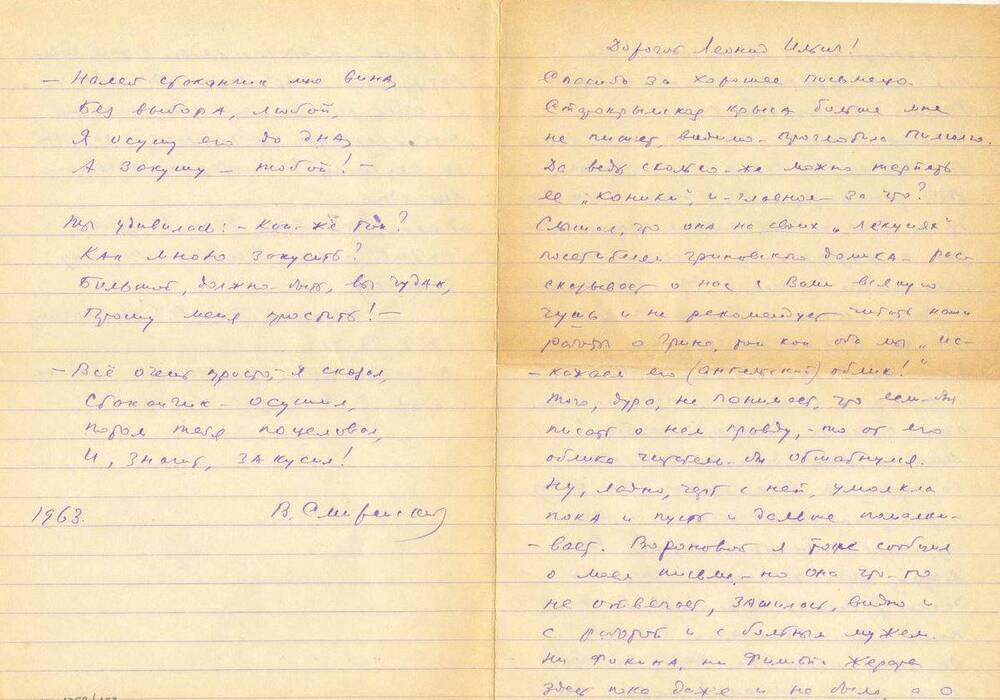 — Налей стаканчик мне вина,
Без выбора, любой,
Я осушу его до дна,
А закушу — тобой! —
Ты удивилась: — Как-же так?
Как мною закусить?
Большой, должно-быть, вы чудак,
Прошу меня простить! —
— Всё очень просто, — я сказал,
Стаканчик — осушил,
Потом тебя поцеловал,
И, значит, закусил!
1963. В. Смиренский
Дорогой Леонид Ильич!
Спасибо за хорошее письмецо.
Старокрымская крыса больше мне
не пишет, видимо — проглотила пилюлю.
Да ведь сколько-же можно терпеть
ее и — главное — за что?
Слышал, что она на своих „лекциях"
посетителям гриновского домика — рас-
сказывает о нас с Вами всякую
чушь и не рекомендует читать наши
работы о Грине, так как оба мы „ис-
— кажаем его (ангельский) облик!"
Того, дура, не понимает, что если-бы
писать о нем правду, — то от его
облика читатель-бы
Ну, ладно, черт с ней, умолкла
пока и пусть и дальше помалки-
— вает. Вороновой я тоже сообщил
о моем письме, — но она что-то
не отвечает, зашилась, видно и
с работой и с больным мужем.
Ни ни
здесь пока даже и не был, а о